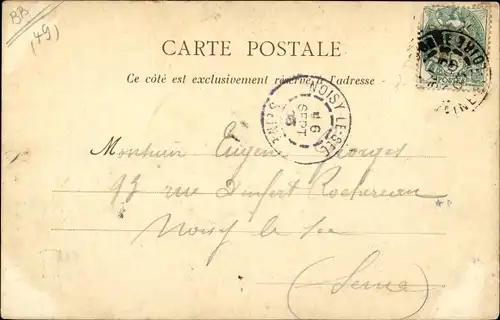 BB
(49)
CARTE POSTALE
Ce côté est exclusivement réservé à l'adresse
NOISY-LE-SEC
SEINE
6
SEPT
Monsieur Eugène Georges
93 rue Denfert Rochereau
Noisy le Sec
(Seine)